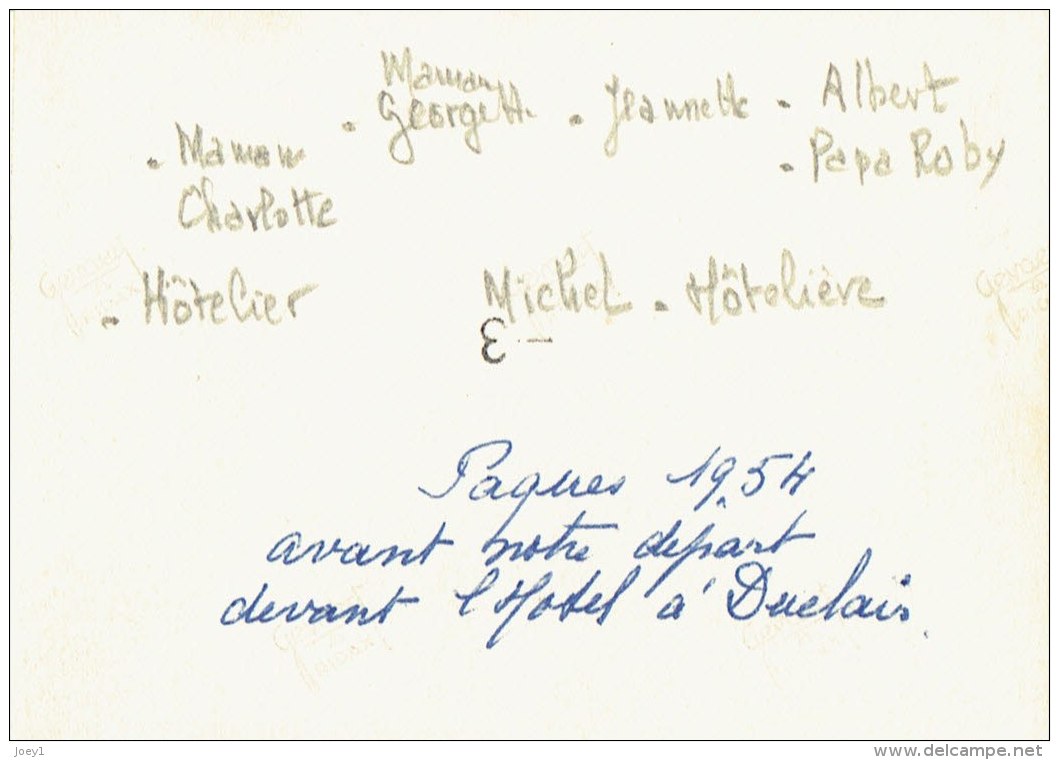 Maman
Georgette . Jeannette - Albert
. Maman
Charlotte
- Papa Roby
. Hôtelier
Michel . Hôtelière
3 -
Paques 1954
avant notre départ
devant l'Hotel à Duclair.
Joey1
www.delcampe.net